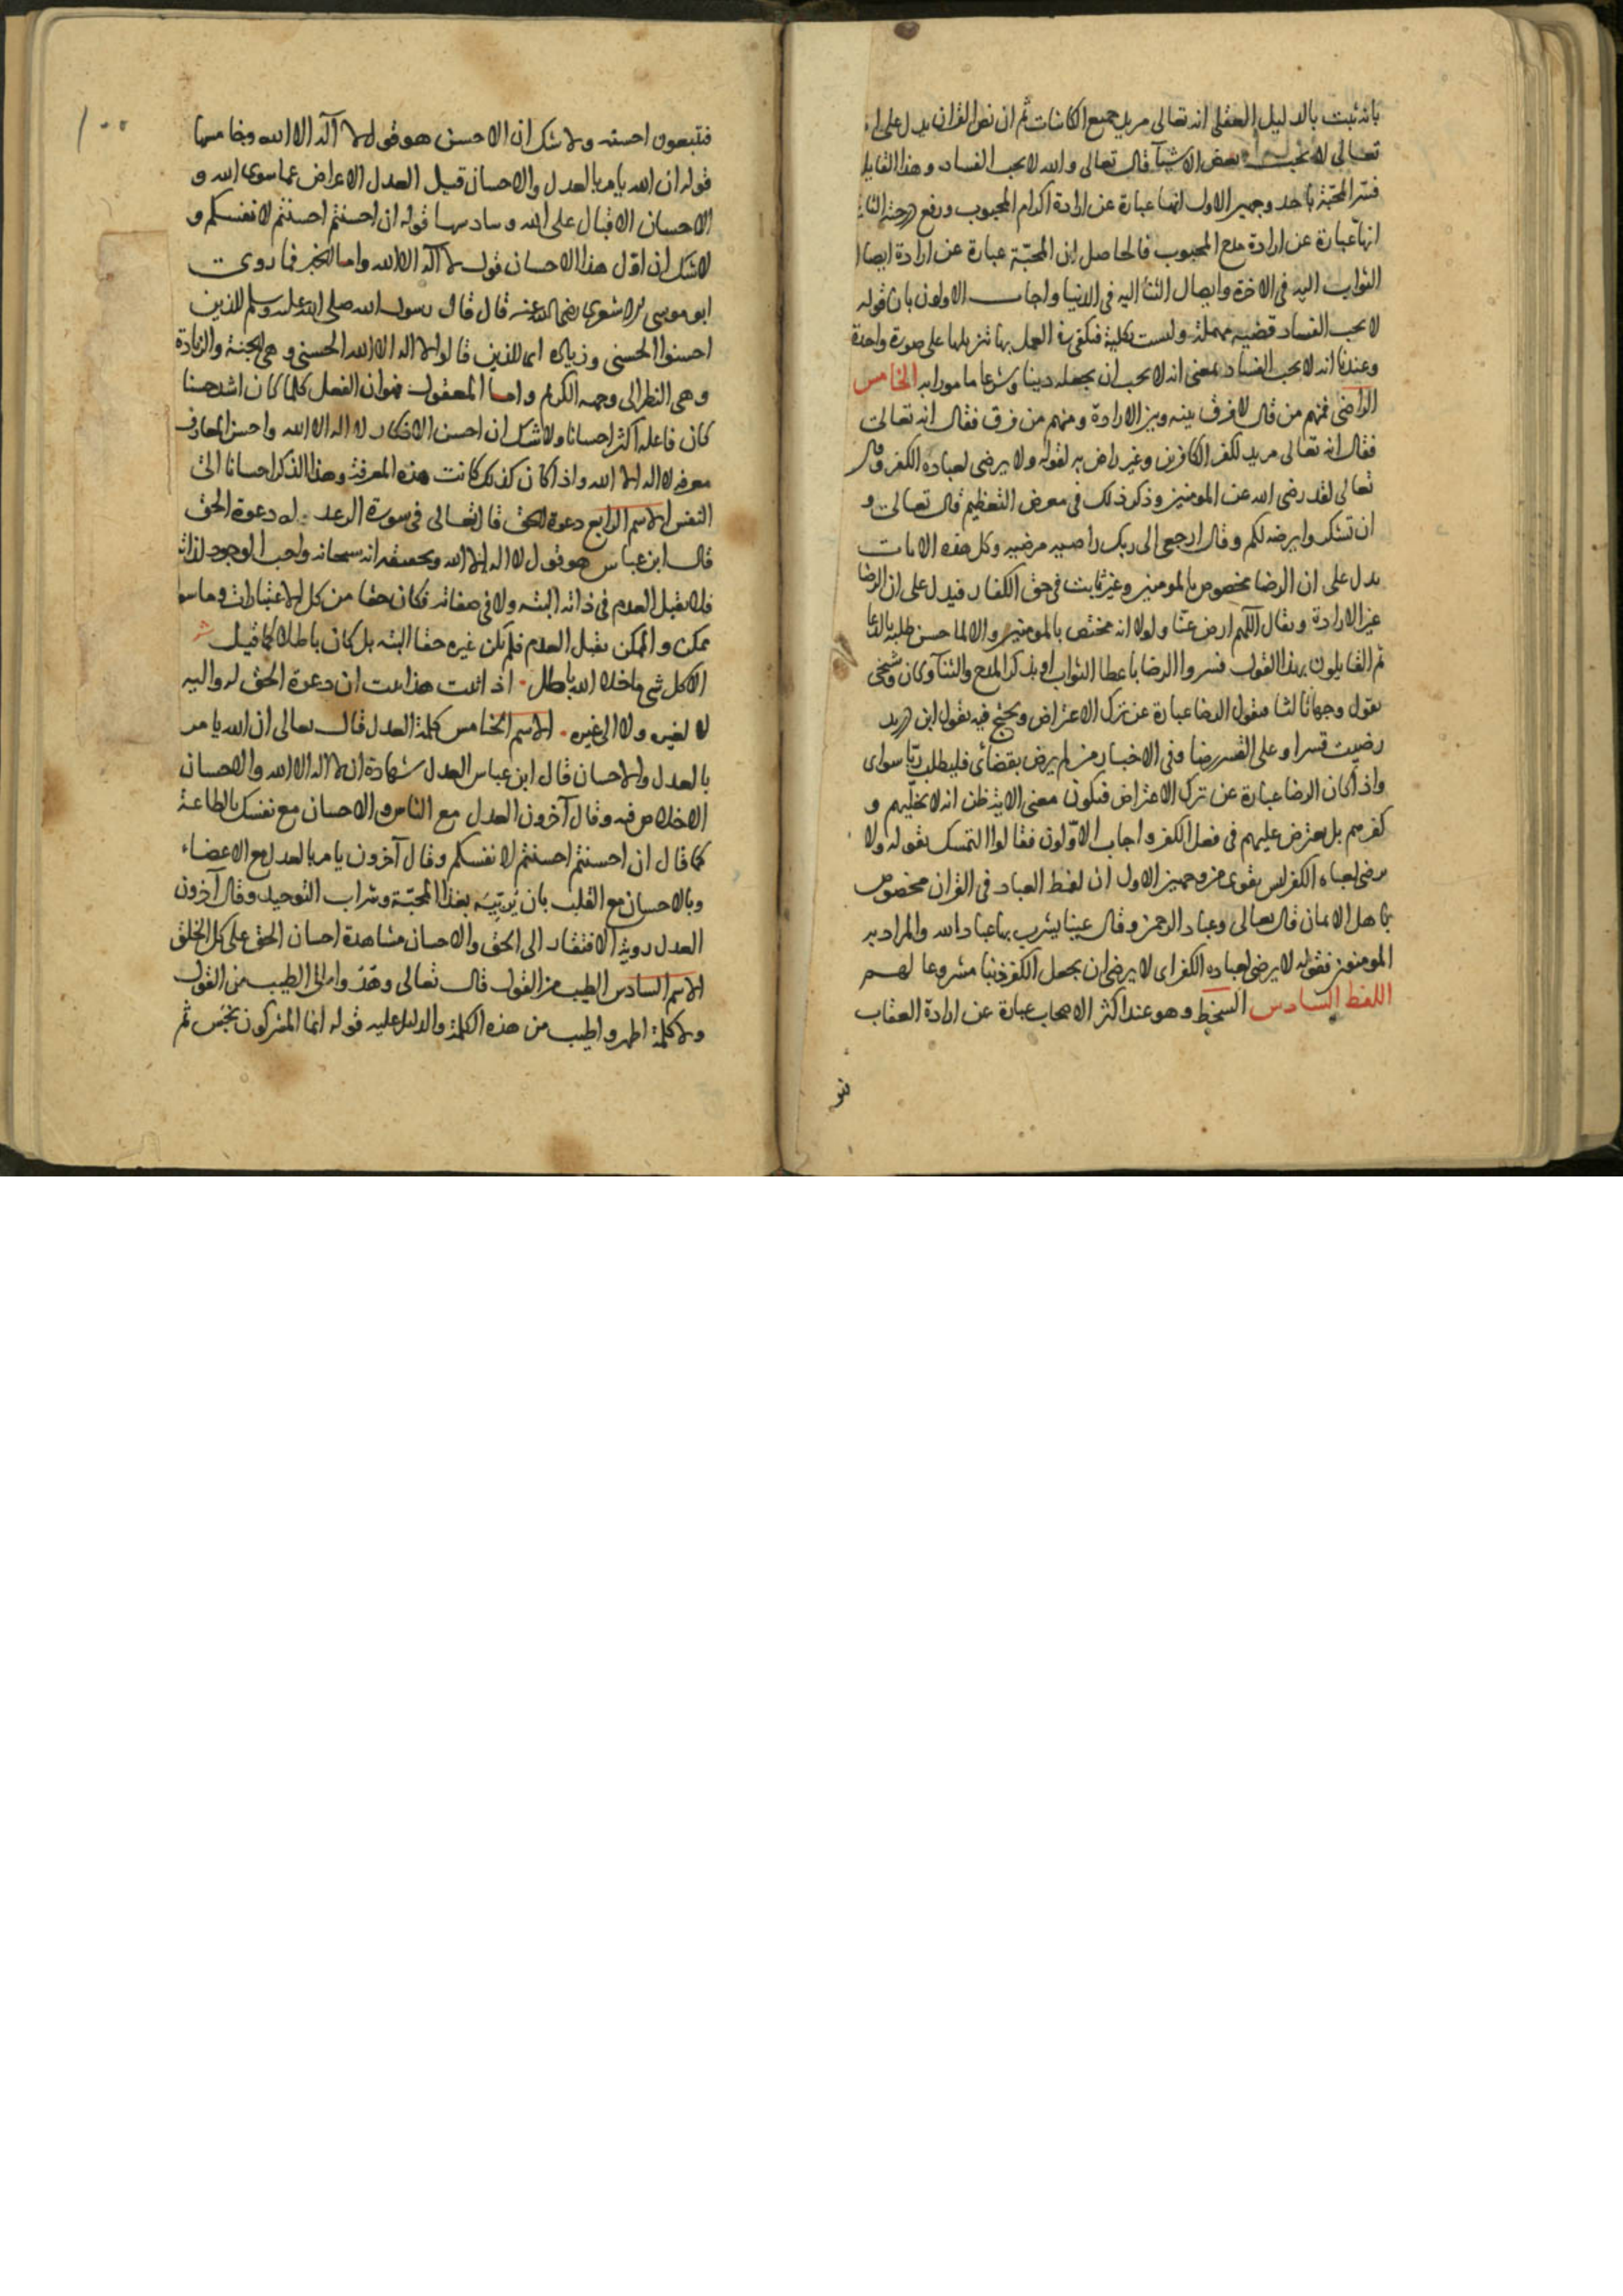 بانه ثبت بالدليل العقلى انه تعالى مريد جميع الكائنات ثم ان نص القران يدل على انه
تعالى لا يحب بعض الاشيآ قال تعالى والله لا يحب الفساد وهذا القايل
فسر المحبة باحد وجهين الاول انها عبارة عن ارادة اكرام المحبوب ورفع درجته الثانى
انها عبارة عن ارادة مدح المحبوب فالحاصل ان المحبّة عبارة عن ارادة ايصال
الثواب اليه فى الاخرة وايصال الثنآ اليه فى الدنيا واجاب الاولون بان قوله
لا يحب الفساد قضيه مهملة وليست بكلية فيكفى فى العمل بها تنزيلها على صورة واحدة
وعندنا انه لا يحب الفساد بمعنى انه لا يحب ان يجعله دينا وشرعا مامورا به الخامس
الراضى فمنهم من قال لا فرق بينه وبين الارادة ومنهم من فرق فقال انه تعالى
فقال انه تعالى مريد لكفر الكافرين وغير راض به لقوله ولا يرضى لعباده الكفر وقال
تعالى لقد رضى الله عن المومنين وذكر ذلك فى معرض التعظيم قال تعالى و
ان تشكروا يرضه لكم وقال ارجعى الى ربك راضيه مرضيه وكل هذه الايات
يدل على ان الرضا مخصوص بالمومنين وغير ثابت فى حق الكفار فيدل على ان الرضا
غير الارادة ويقال اللهم ارض عنّا ولولا انه مختص بالمومنين والا لما حسن طلبه بالدعا
ثم القايلون بهذا القول فسروا الرضا باعطا الثواب او بذكر المدح والثنآ وكان شيخى
يقول وجها ثالثا فيقول الرضا عبارة عن ترك الاعتراض ويحتج فيه بقول ابن دريد
رضيت قسرا وعلى القسر رضا وفى الاخبار من لم يرض بقضائى فليطلب ربّا سواى
واذا كان الرضا عبارة عن ترك الاعتراض فيكون معنى الاية انه لا يخليهم و
كفرهم بل يعترض عليهم فى فعل الكفر واجاب الاوّلون فقالوا التمسك بقوله ولا
يرضى لعباده الكفر ليس بقوى من وجهين الاول ان لفظ العباد فى القران مخصوص
باهل الايمان قال تعالى وعباد الرحمن وقال عينا يشرب بها عباد الله والمراد به
المومنون فقوله لا يرضى لعباده الكفر اى لا يرضى ان يجعل الكفر دينا مشروعا لهم
اللفظ السادس السخط وهو عند اكثر الاصحاب عبارة عن ارادة العقاب
١٠٠
فتبعون احسنه ولا شك ان الاحسن هو قول لا آله الا الله وخامسها
قوله ان الله يامر بالعدل والاحسان قيل العدل الاعراض عما سوى الله و
الاحسان الاقبال على الله وسادسها قوله ان احسنتم احسنتم لانفسكم و
لا شك ان اوّل هذا الاحسان قول لا آله الا الله واما الخبر فما روى
ابو موسى الاشعرى رضى الله عنه قال قال رسول الله صلى الله عليه وسلم للذين
احسنوا الحسنى وزياده اى للذين قالوا لا اله الا الله الحسنى وهى الجنة والزيادة
وهى النظر الى وجهه الكريم واما المعقول فهو ان الفعل كلما كان اشد حسنا
كان فاعله اكثر احسانا ولا شك ان احسن الاذكار لا اله الا الله واحسن المعارف
معرفه لا اله الا الله واذا كان كذلك كانت هذه المعرفة وهذا الذكر احسانا الى
النفس الاسم الرابع دعوة الحق قال تعالى فى سورة الرعد له دعوة الحق
قال ابن عباس هو قول لا اله الا الله وتحقيقه انه سبحانه واجب الوجود لذاته
فلا يقبل العدم فى ذاته البته ولا فى صفاته فكان حقا من كل الاعتبارات وما سواه
ممكن والممكن يقبل العدم فلم يكن غيره حقا البته بل كان باطلا كما قيل
الا كل شى ما خلا الله باطل اذا ثبت هذا ثبت ان دعوة الحق له واليه
لا لغيره ولا الى غيره الاسم الخامس كلمة العدل قال تعالى ان الله يامر
بالعدل والاحسان قال ابن عباس العدل شهادة ان لا اله الا الله والاحسان
الاخلاص فيه وقال آخرون العدل مع الناس والاحسان مع نفسك بالطاعة
كما قال ان احسنتم احسنتم لانفسكم وقال آخرون يامر بالعدل مع الاعضاء
وبالاحسان مع القلب بان يربّيه بغذا المحبّة وشراب التوحيد وقال آخرون
العدل روية الافتقار الى الحق والاحسان مشاهدة احسان الحق على كل الخلق
الاسم السادس الطيب من القول قال تعالى وهدوا الى الطيب من القول
ولا كلمة اطهر واطيب من هذه الكلمة والدليل عليه قوله انما المشركون نجس ثم